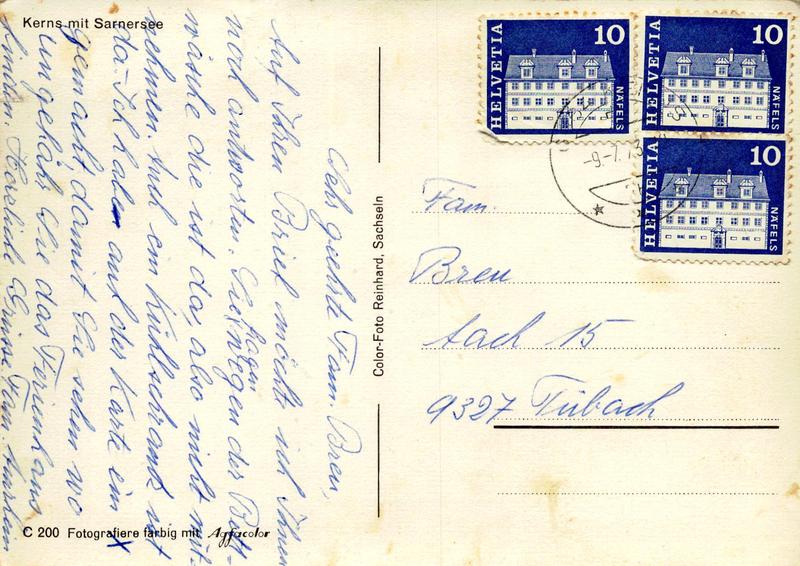 Kerns mit Sarnersee
Sehr geehrte Fam. Breu,
Auf Ihren Brief möchte ich Ihnen
noch antworten. Sie fragen wegen der Bett-
wäsche die ist da, also nicht mit-
nehmen. Und ein Kühlschrank ist
da. Ich habe auf der Karte ein X
gemacht damit Sie sehen wo
ungefähr Sie das Ferienhaus
finden. Herzliche Grüsse Fam.
C 200 Fotografiere farbig mit Agfacolor
Color-Foto Reinhard, Sachseln
HELVETIA 10 NÄFELS
HELVETIA 10 NÄFELS
HELVETIA 10 NÄFELS
-9.-7.73
Fam.
Breu
Aach 15
9327 Tübach